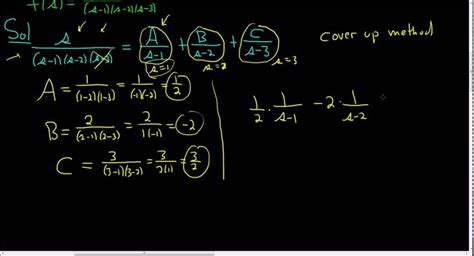 f(s) = / (s-1)(s-2)(s-3)
Sol s/((s-1)(s-2)(s-3)) = A/(s-1) + B/(s-2) + C/(s-3)
s=1 s=2 s=3
cover up method
A = 1/((1-2)(1-3)) = 1/((-1)(-2)) = 1/2
B = 2/((2-1)(2-3)) = 2/(1(-1)) = -2
C = 3/((3-1)(3-2)) = 3/(2(1)) = 3/2
1/2 · 1/(s-1) - 2 · 1/(s-2)